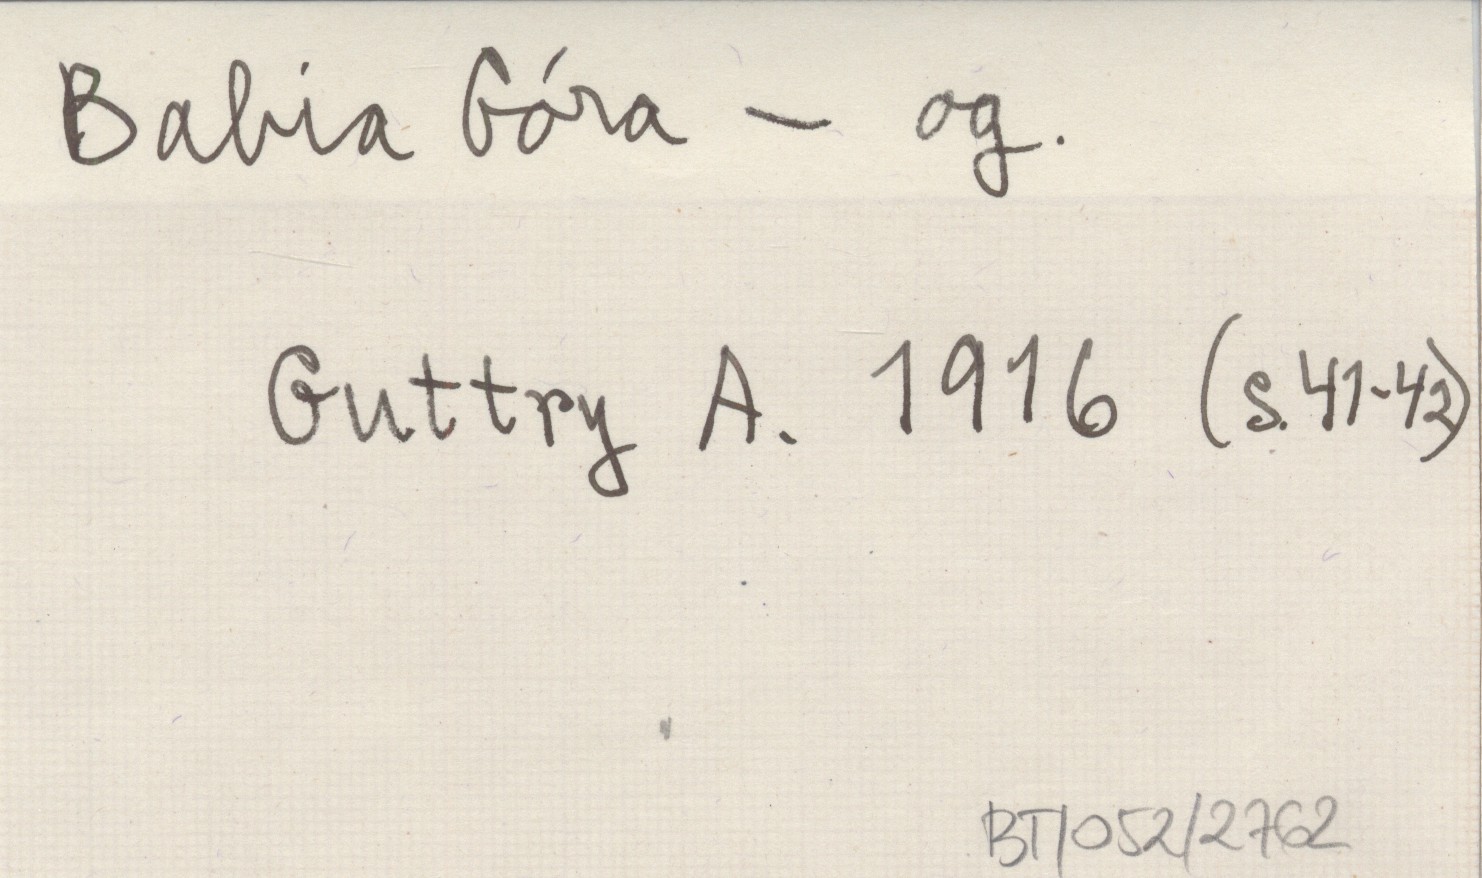 Babia Góra – og.
Guttry A. 1916 (s. 41-42)
BT/052/2762